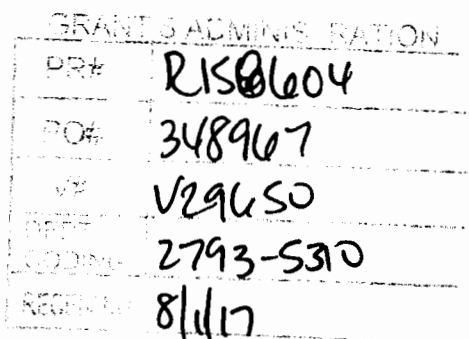 GRANTS ADMINISTRATION
PR# R158604
PO# 348967
V# V29650
DEPT
CODING 2793-5310
RECEIVED 8/1/17